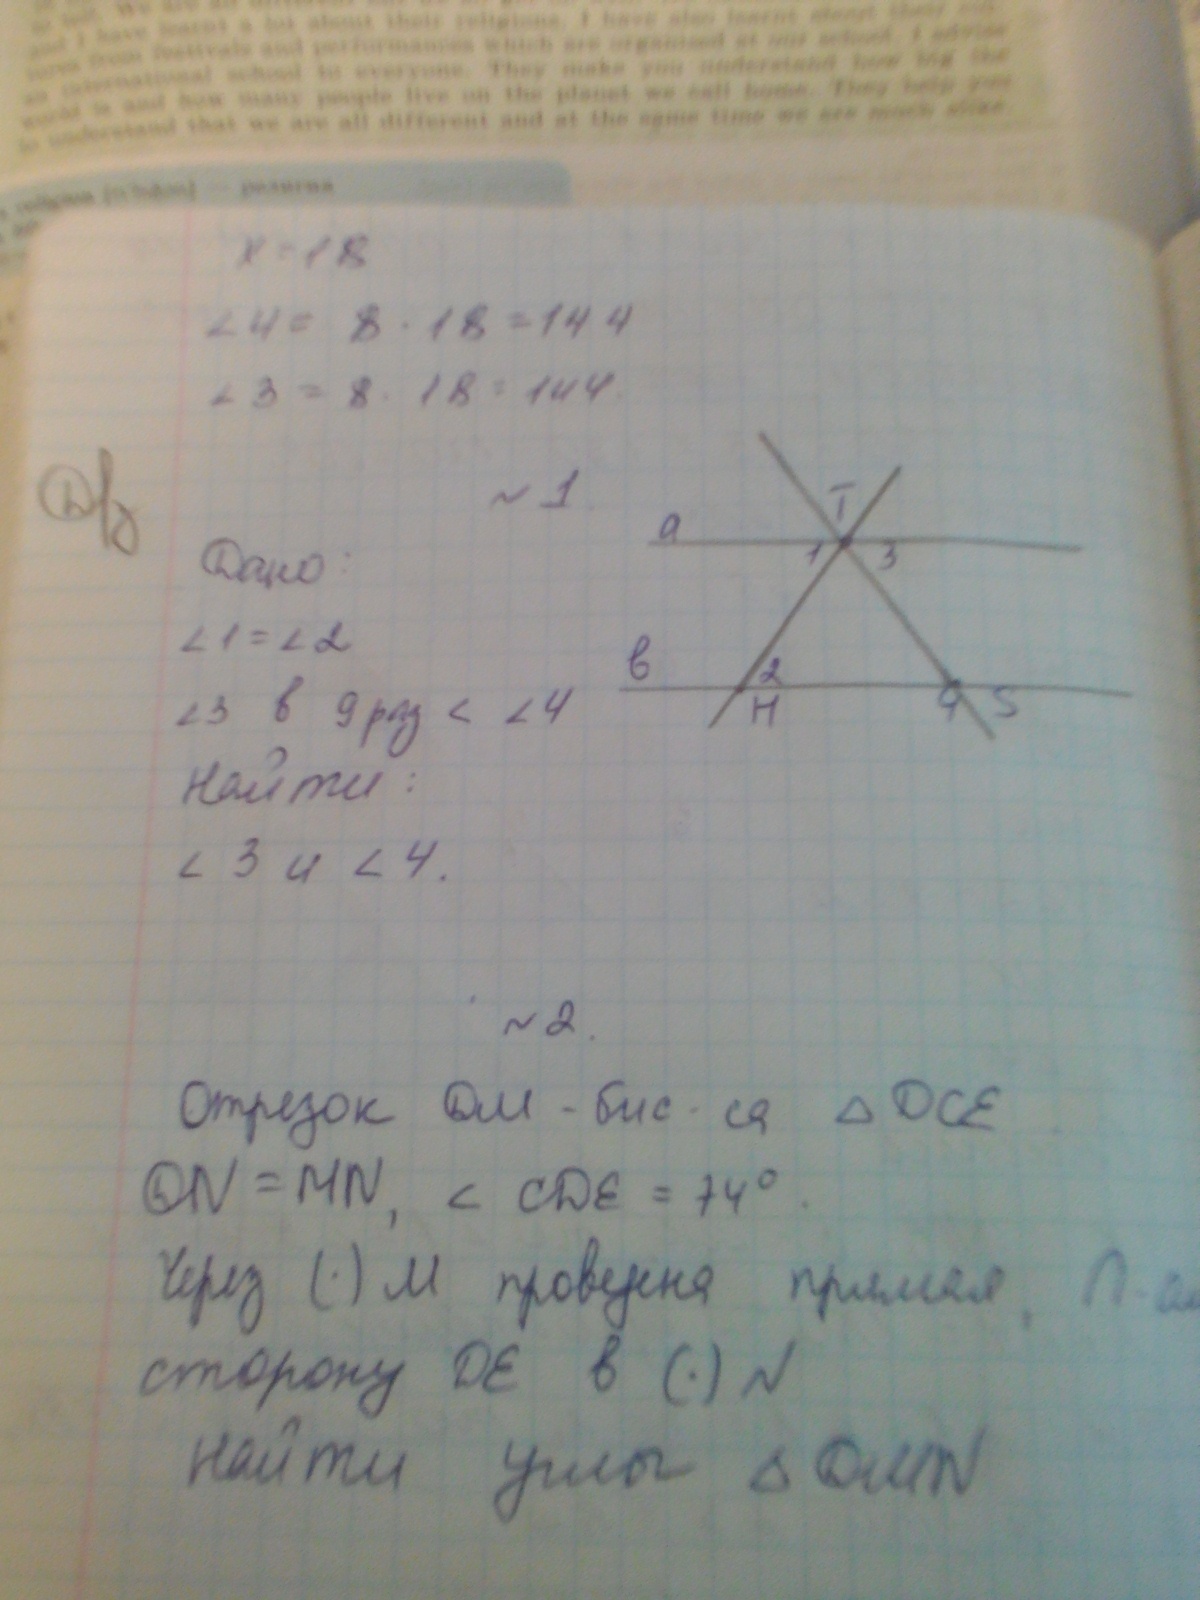 and I have learnt a lot about their religions. I have also learnt about their cul-
tures from festivals and performances which are organised at our school. I advise
an international school to everyone. They make you understand how big the
world is and how many people live on the planet we call home. They help you
to understand that we are all different and at the same time we are much alike.
— религия
x=18
∠4= 8·18=144
∠3=8·18=144.
Д/з
~1.
Дано:
∠1=∠2
∠3 в 9 раз < ∠4
Найти:
∠3 и ∠4.
T
a
1 3
в
2
H 4 S
~2.
Отрезок DM - бис-са △ DCE
DN=MN, ∠ CDE = 74°.
Через (·) M проведена прямая,
сторону DE в (·) N
Найти углы △ DMN